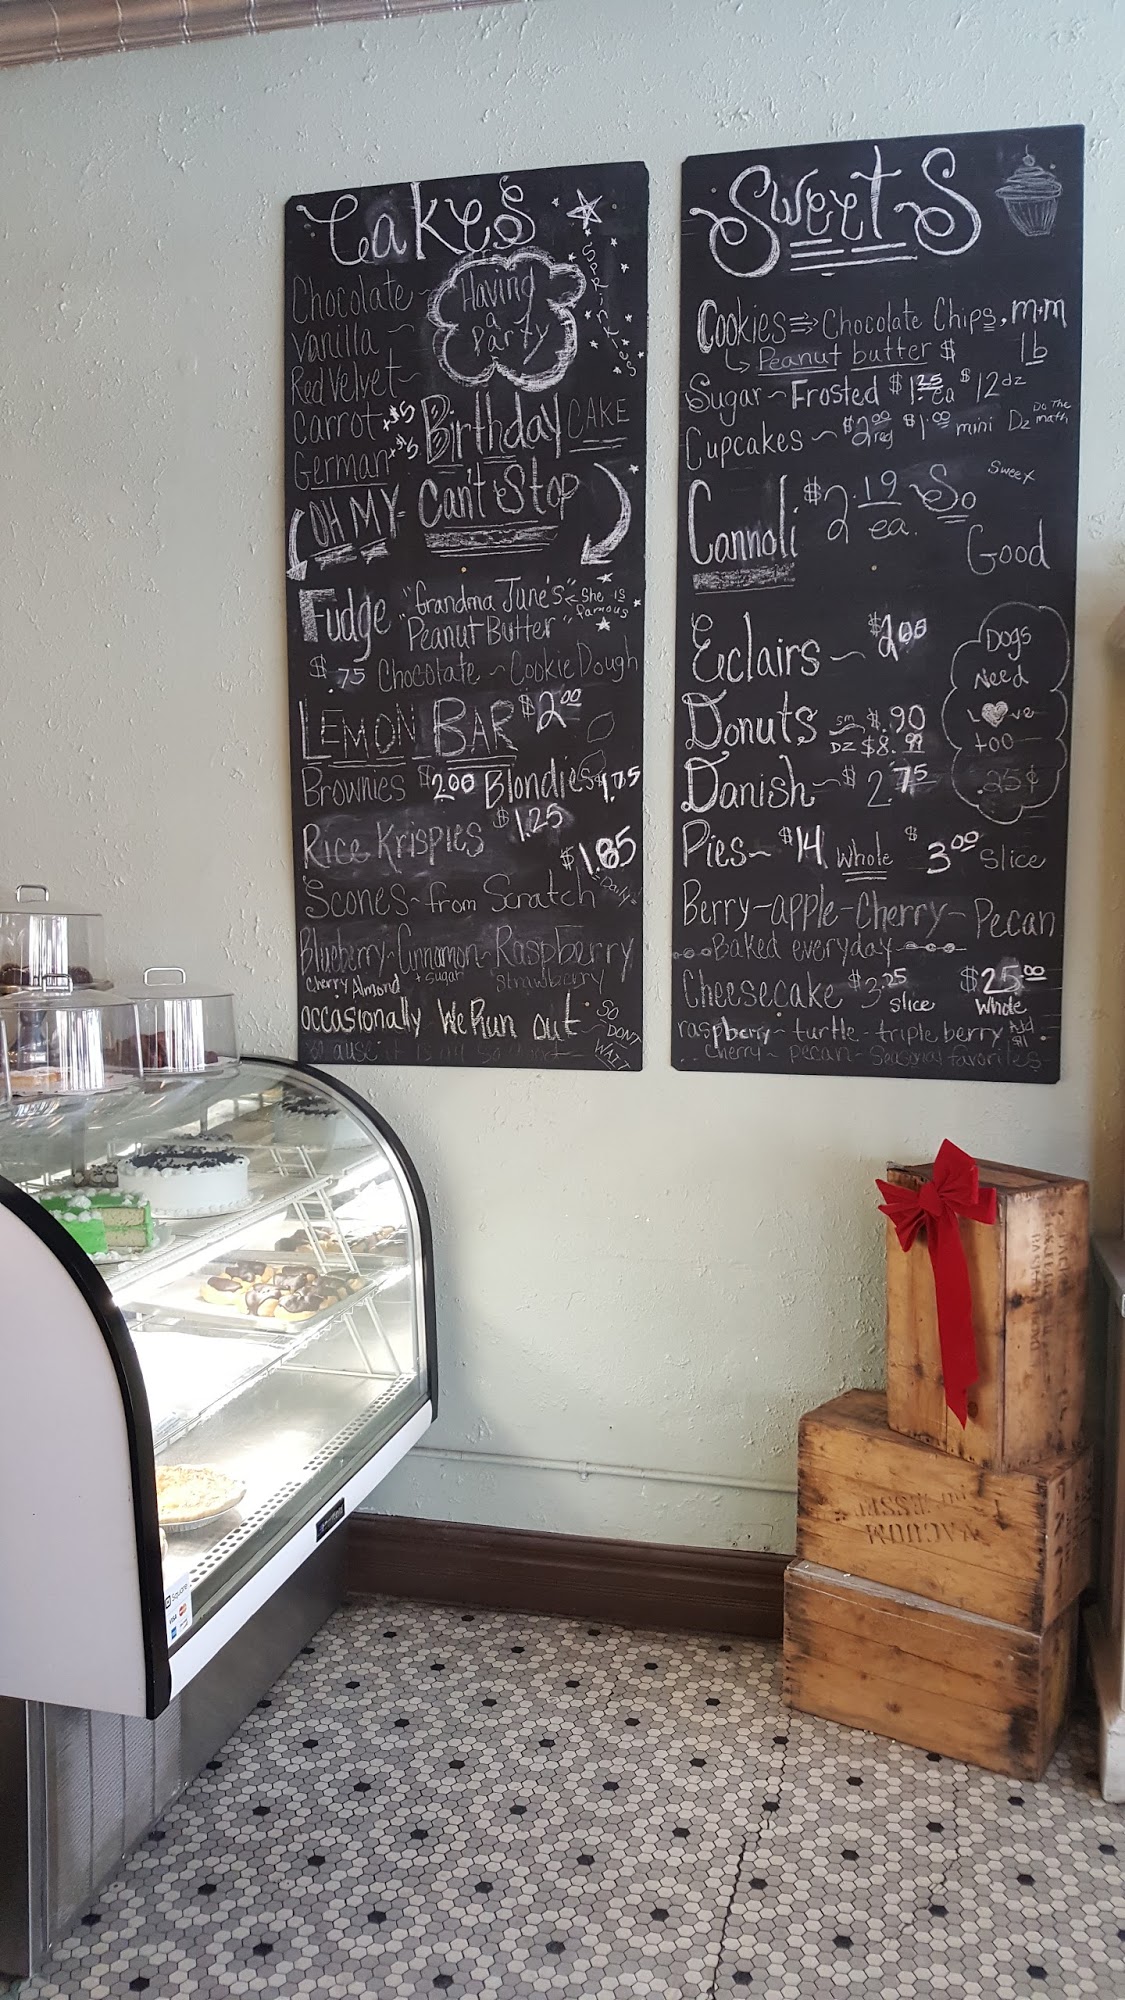 Cakes
Sprinkles
Chocolate ~
Vanilla ~
Red Velvet ~
Carrot +$5
German +$5
Having
a
Party
Birthday CAKE
OH MY Can't Stop
Fudge "Grandma June's" ← She is
famous
Peanut Butter"
$.75 Chocolate ~ Cookie Dough
LEMON BAR $2.00
Brownies $2.00 Blondies $1.75
Rice Krispies $1.25
$1.85
Scones ~ from Scratch Daily!
Blueberry - Cinnamon - Raspberry
Cherry Almond + sugar Strawberry
occasionally We Run out
SO
DONT
WAIT
Sweets
Cookies ⇒ Chocolate Chips, m+m
Peanut butter $ 1b
Sugar ~ Frosted $1.25 ea $12 dz
Cupcakes ~ $2.00 reg $1.00 mini Dz Do The
math
Cannoli $2.19 ea. So
Sweet
Good
Eclairs ~ $2.00
Donuts sm $.90
DZ $8.99
Danish ~ $2.75
Dogs
Need
Love
too
.25¢
Pies ~ $14 Whole $3.00 Slice
Berry - apple - Cherry - Pecan
Baked everyday
Cheesecake $3.25 Slice $25.00 Whole
raspberry - turtle - triple berry Add
$1
Cherry - pecan - Seasonal favorites
Square
VISA
VACUUM